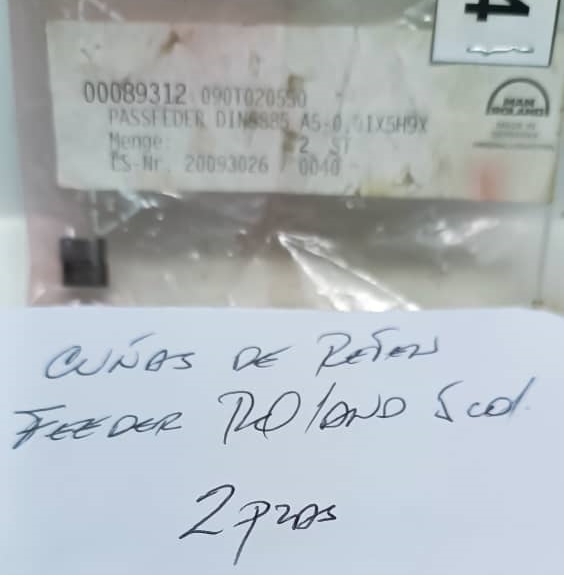 4
00089312 090T020550
PASSFEDER DIN6885 A5-0,01X5H9X
Menge: 2 ST
LS-Nr. 20093026 / 0040
MAN
ROLAND
MADE IN
CUÑAS DE RETEN
FEEDER ROLAND 5 col.
2 pzas